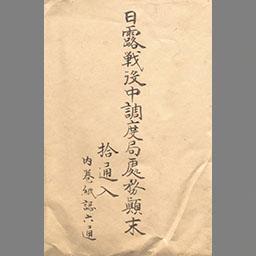 日露戦役中調度局処務顛末
拾通入
内巻紙認六通